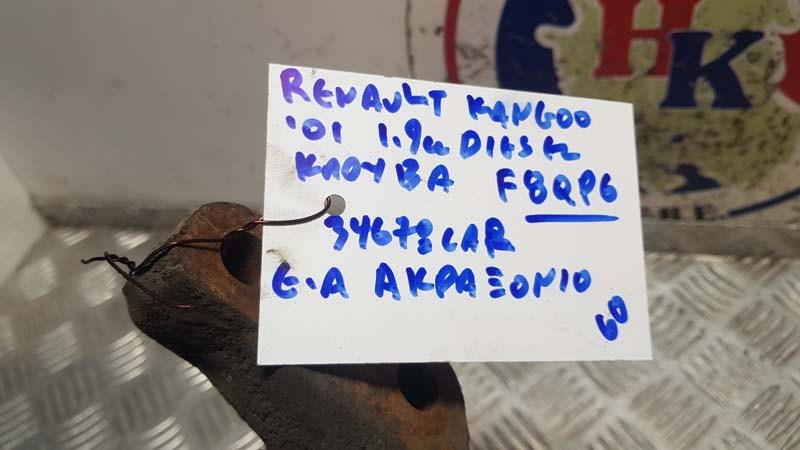 HK
RENAULT KANGOO
'01 1.9cc DIESEL
ΚΛΟΥΒΑ F8QP6
34678CAR
Ε.Α ΑΚΡΑΞΟΝΙΟ
60